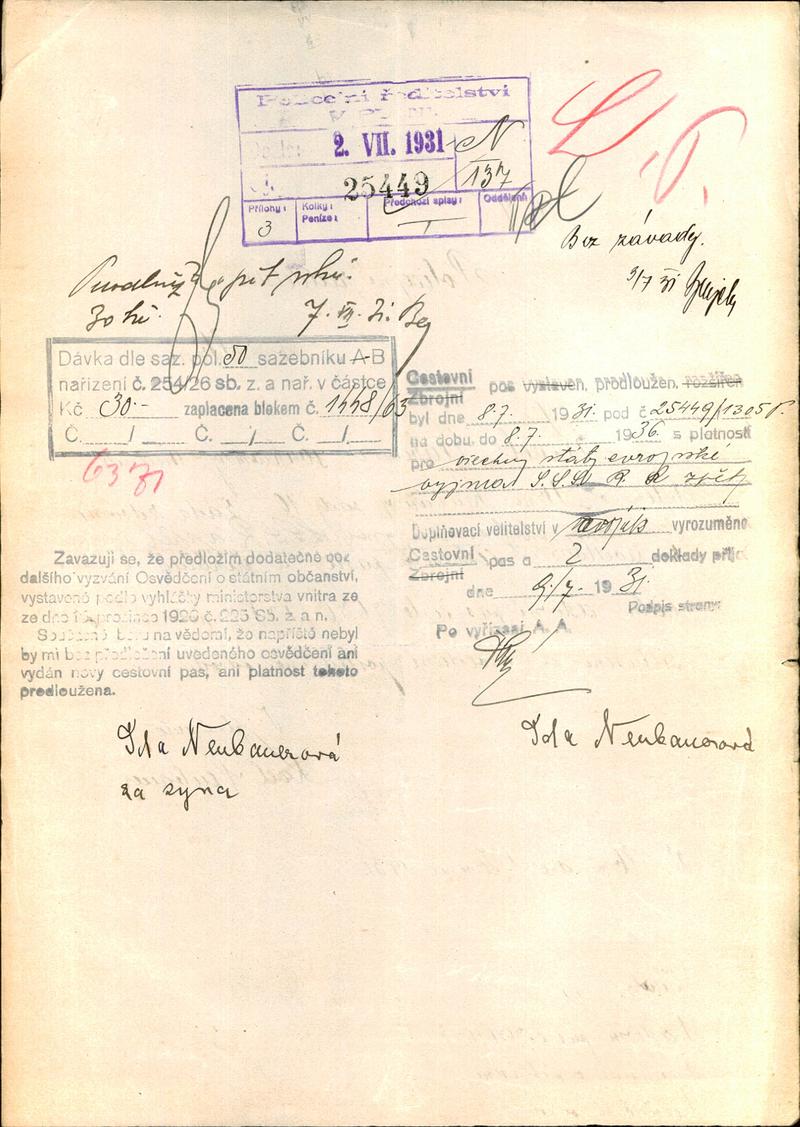 Policejní ředitelství
2. VII. 1931
N
137
25449
Přílohy:
Kolky:
Peníze:
Předchozí spisy:
Oddělení
3
I
Bez závady.
9/7 31
pět roků.
30 kč.
7. VII. 31.
Dávka dle saz. pol. 50 sazebníku A-B
nařízení č. 254/26 sb. z. a nař. v částce
Kč 30.- zaplacena blokem č. 1448/63
Č. / Č. / Č. /
6371
Cestovní pas vystaven, prodloužen, rozšířen
Zbrojní
byl dne 8.7. 1931. pod č 25449/1305
na dobu do 8.7. 1936. s platností
pro všechny státy evropské
vyjma S.S.S.R. a zpět
Doplňovací velitelství v vyrozuměno
Cestovní pas a 2 doklady přij.
Zbrojní
dne 9./7. 1931.
Podpis strany:
Po vyřízení A. A.
Zavazuji se, že předložím dodatečně
dalšího vyzvání Osvědčení o státním občanství,
vystavené podle vyhlášky ministerstva vnitra ze
ze dne prosince 1920 č. 225 Sb. z. a n.
Současně beru na vědomí, že napříště nebyl
by mi bez předložení uvedeného osvědčení ani
vydán nový cestovní pas, ani platnost tohoto
prodloužena.
Ida Neubauerová
za syna
Ida Neubauerová